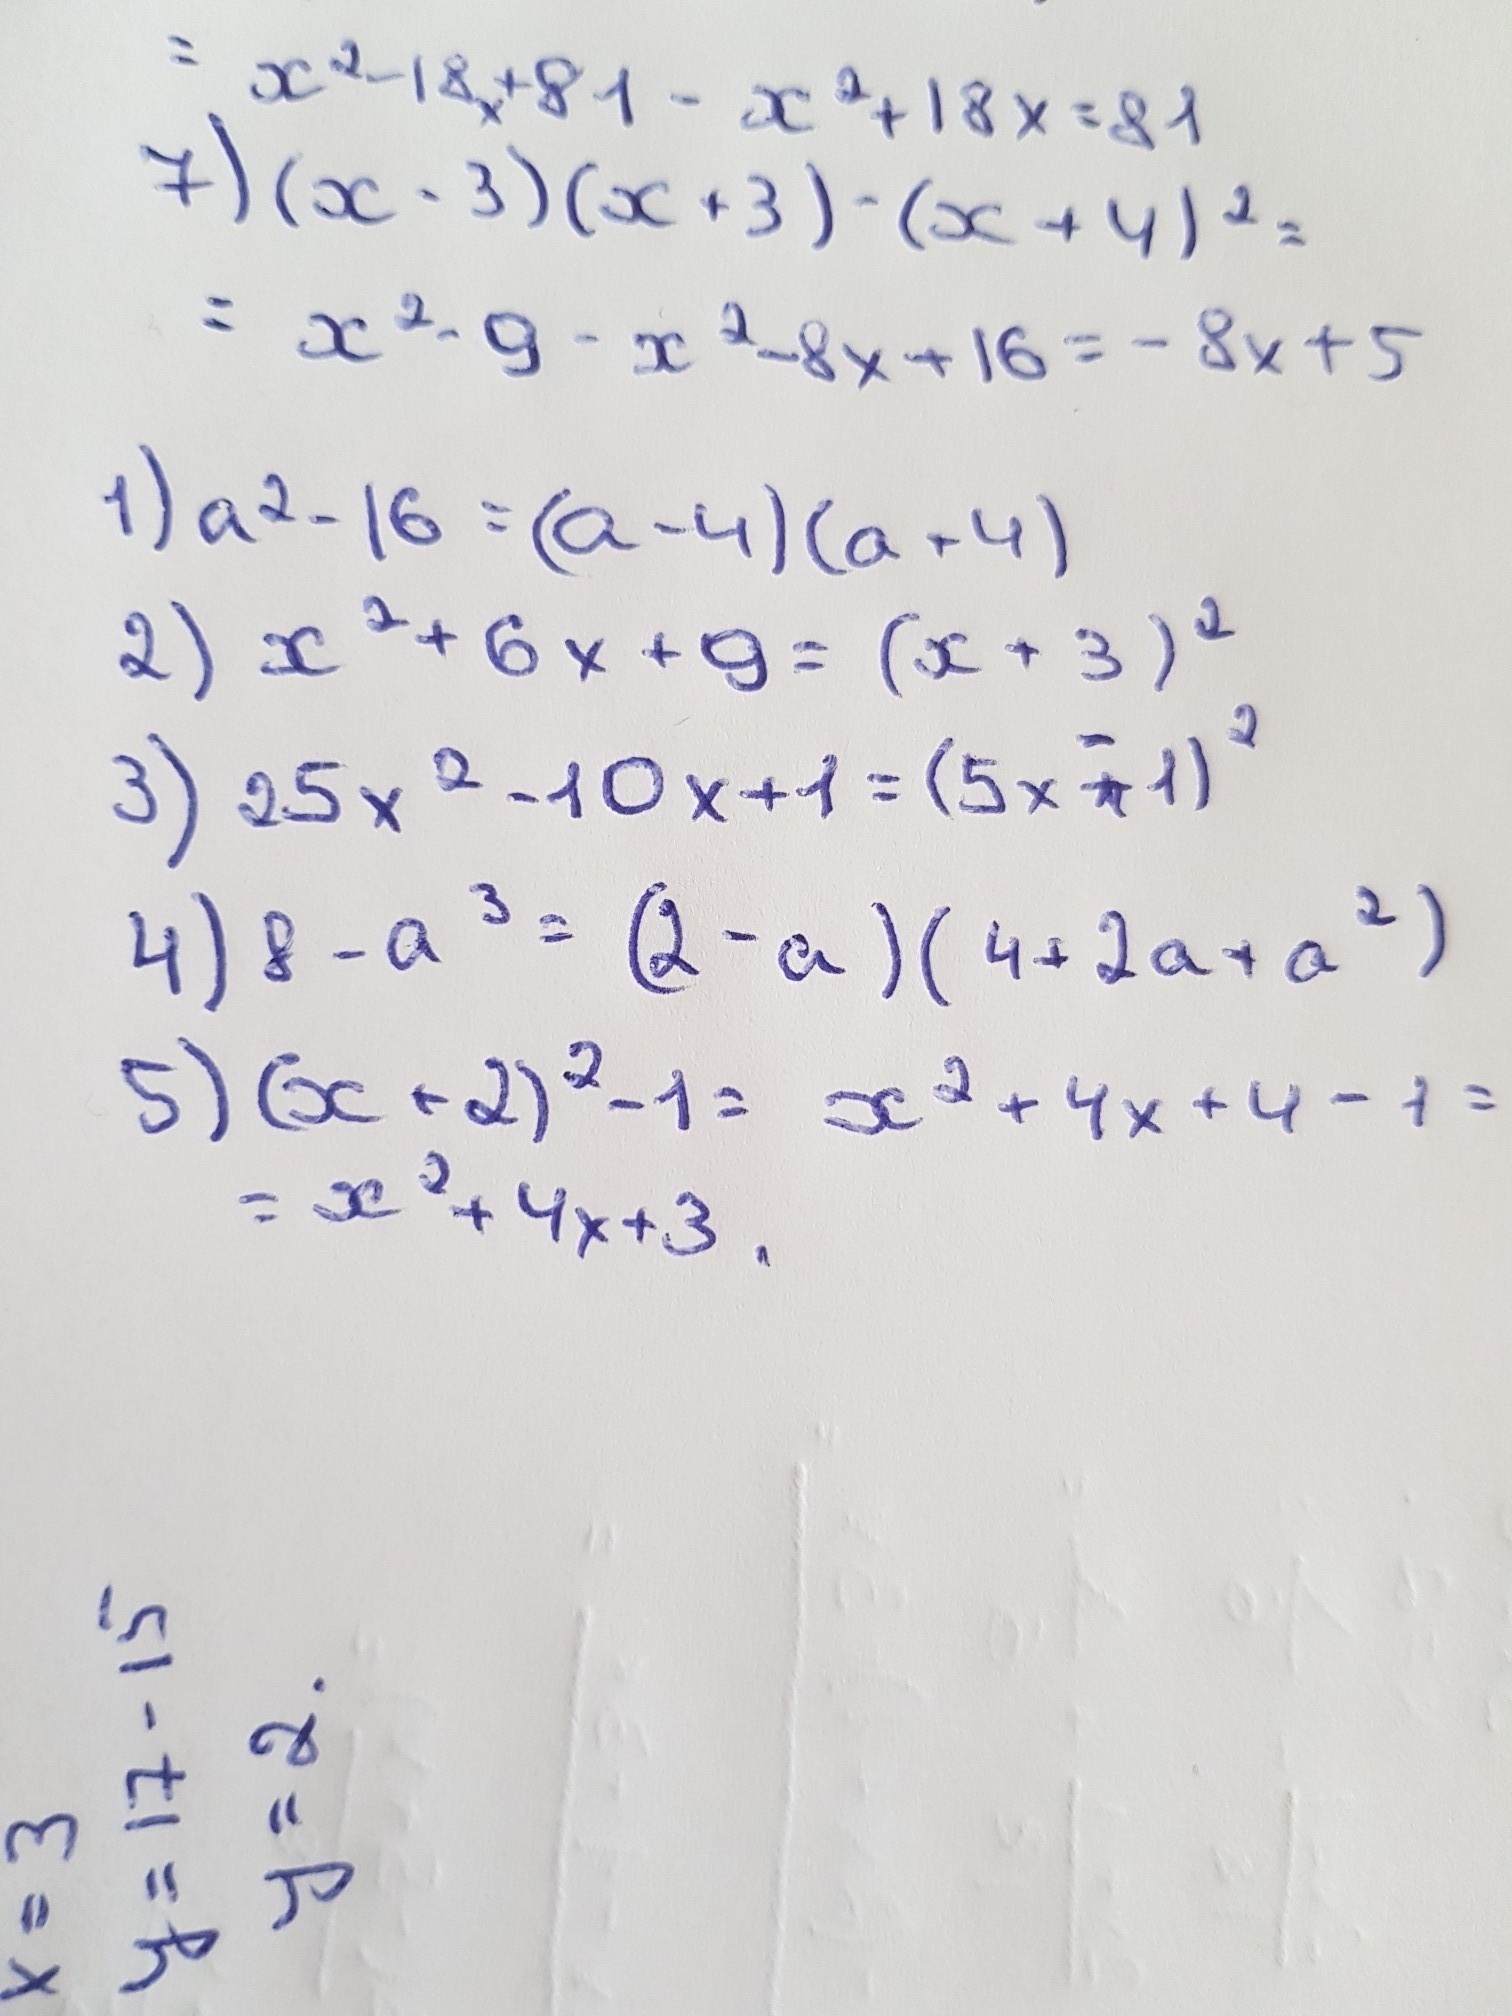 = x² - 18x + 81 - x² + 18x = 81
7) (x - 3)(x + 3) - (x + 4)² =
= x² - 9 - x² - 8x + 16 = - 8x + 5
1) a² - 16 = (a - 4)(a + 4)
2) x² + 6x + 9 = (x + 3)²
3) 25x² - 10x + 1 = (5x - 1)²
4) 8 - a³ = (2 - a)(4 + 2a + a²)
5) (x + 2)² - 1 = x² + 4x + 4 - 1 =
= x² + 4x + 3.
x = 3
y = 17 - 15
y = 2.